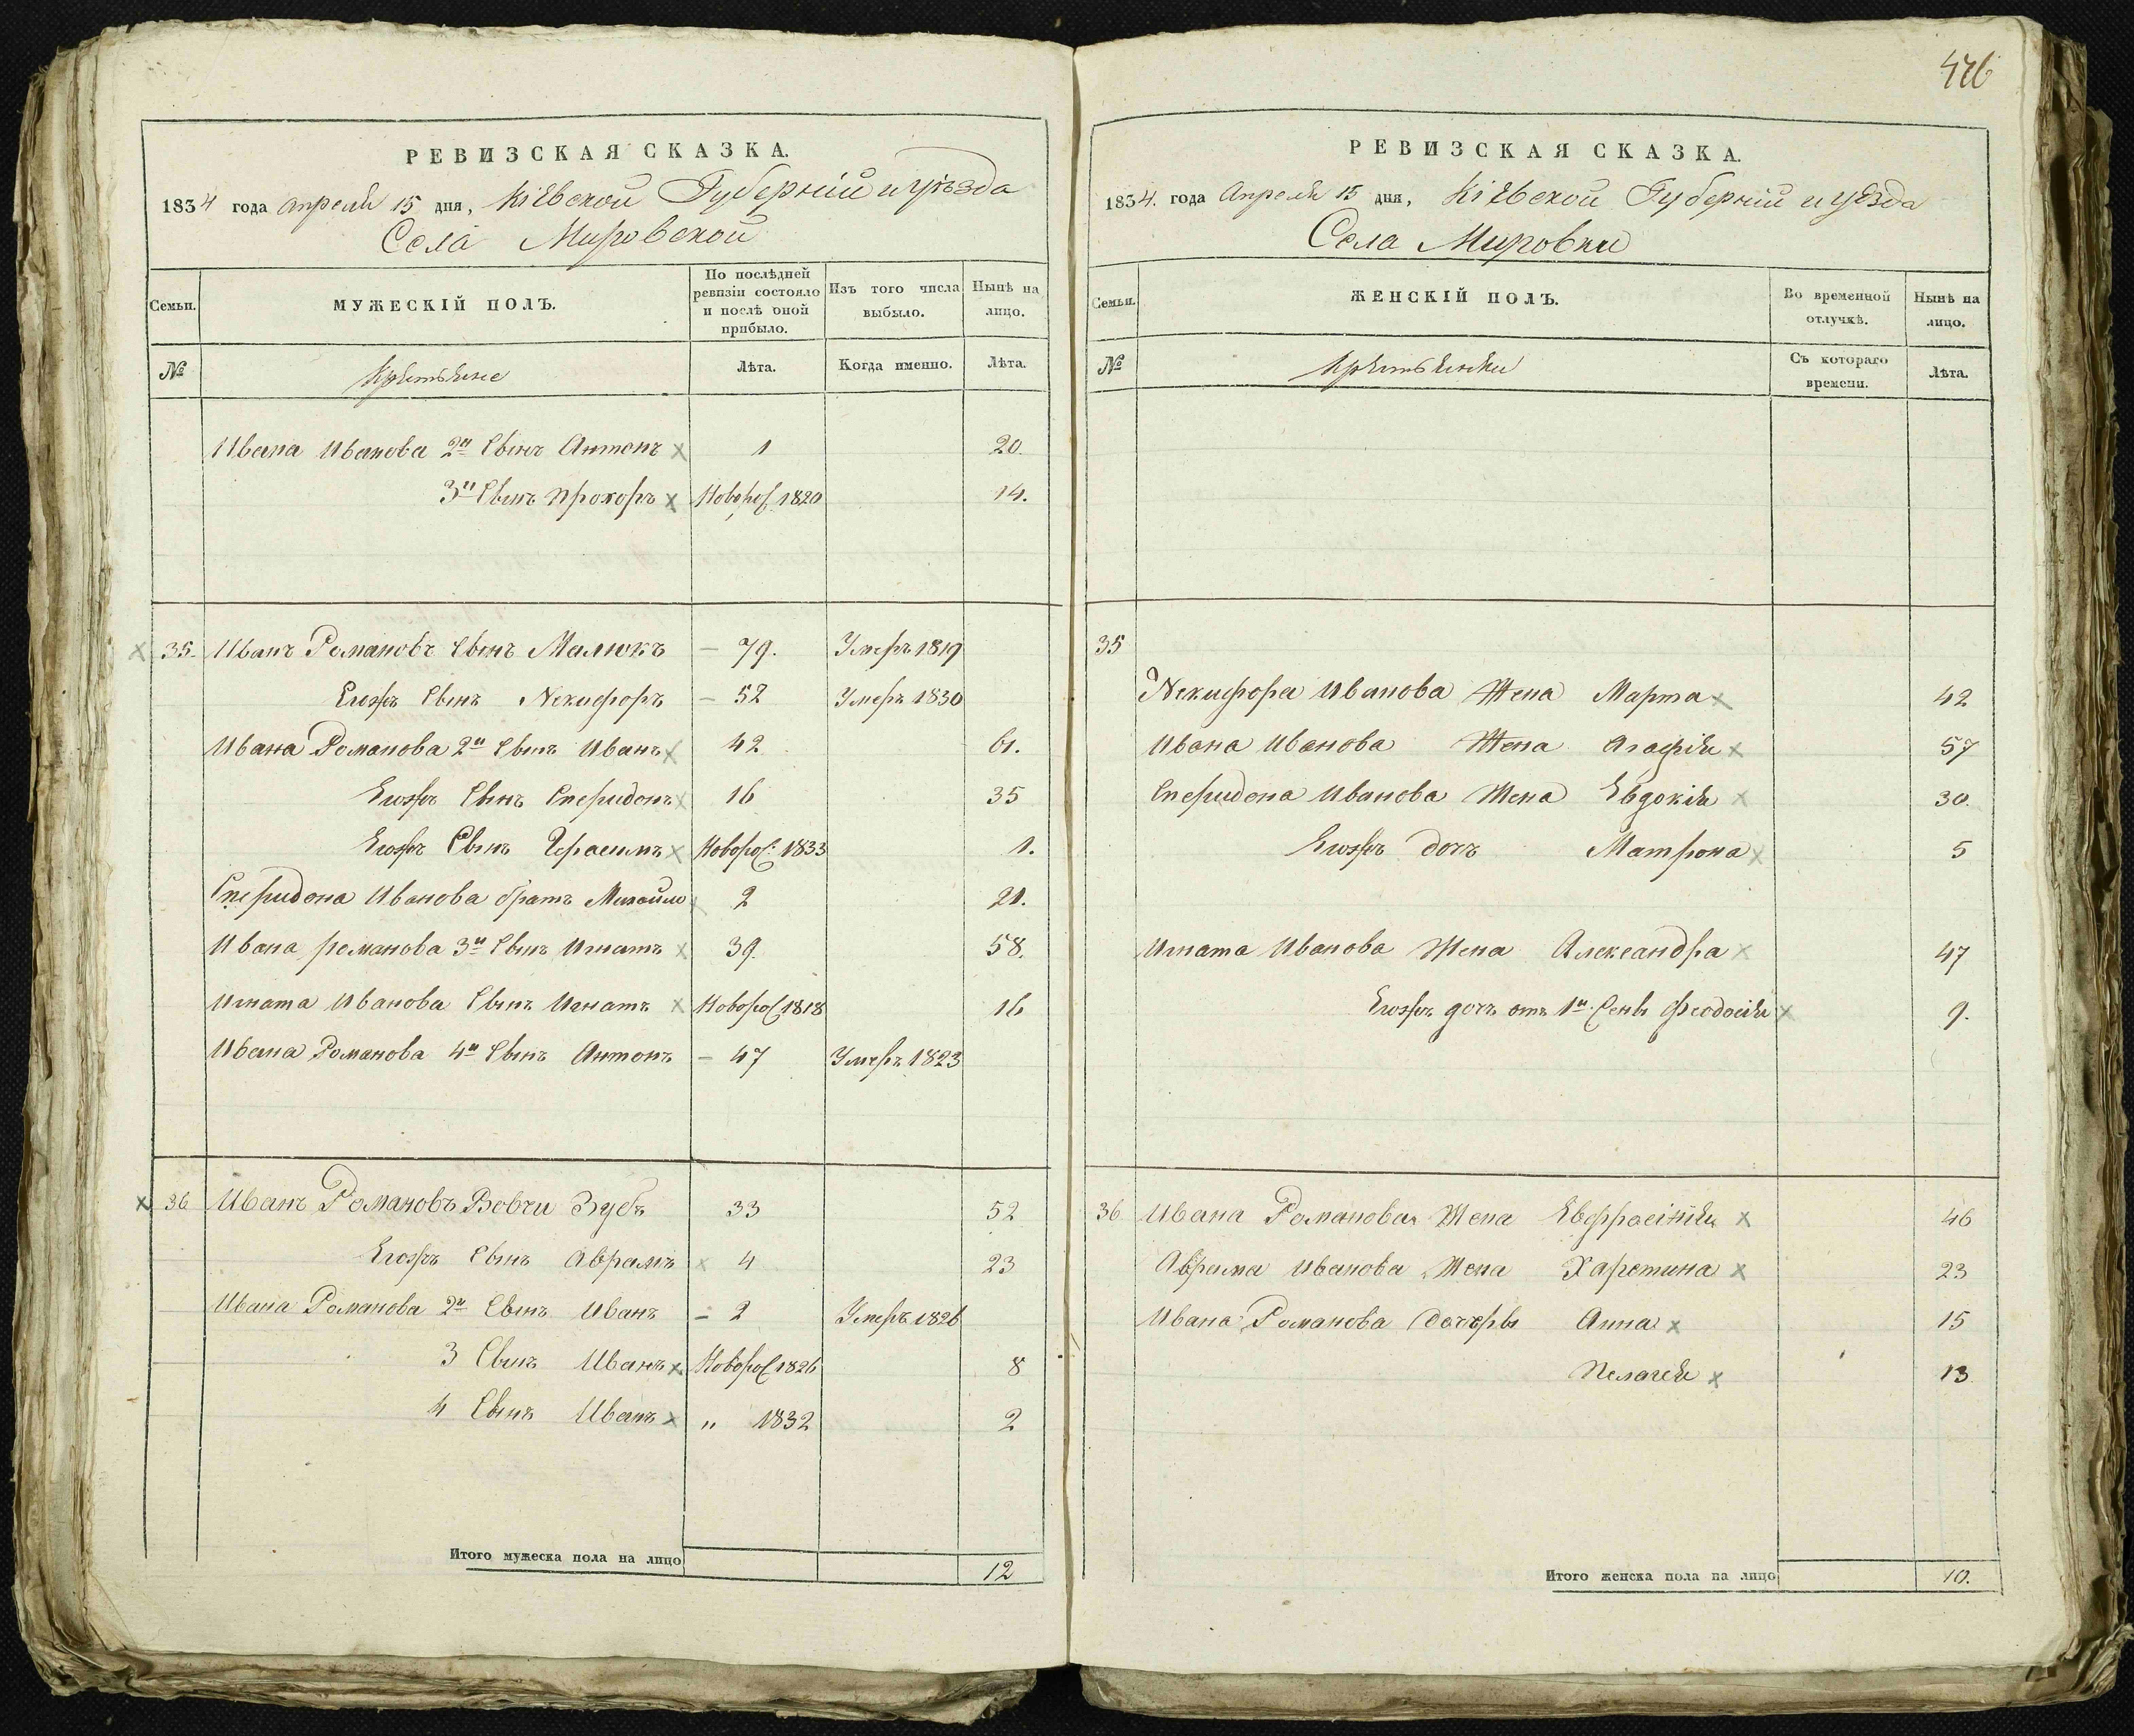 426
РЕВИЗСКАЯ СКАЗКА.
1834 года Апреля 15 дня, Кіевской Губерніи и уѣзда
Села Мировской
Семьи.
МУЖЕСКІЙ ПОЛЪ.
По послѣдней ревизіи состояло и послѣ оной прибыло.
Изъ того числа выбыло.
Нынѣ на лицо.
№
Крестьяне
Лѣта.
Когда именно.
Лѣта.
Ивана Иванова 2й Сынъ Антонъ х 1 20.
3й Сынъ Прохоръ х Новорож 1820 14.
х 35. Иванъ Романовъ Сынъ Малюкъ – 79. Умеръ 1819
Егожъ Сынъ Некифоръ – 52 Умеръ 1830
Ивана Романова 2й Сынъ Иванъ х 42 61.
Егожъ Сынъ Спиридонъ х 16 35
Егожъ Сынъ Герасимъ х Новорож: 1833 1.
Спиридона Иванова братъ Михайло х 2 21.
Ивана романова 3й Сынъ Игнатъ х 39. 58.
Игната Иванова Сынъ Игнатъ х Новорож 1818 16
Ивана Романова 4й Сынъ Антонъ – 47 Умеръ 1823
х 36 Иванъ Романовъ Вовчи Зубъ 33 52
Егожъ Сынъ Аврамъ х 4 23
Ивана Романова 2й Сынъ Иванъ – 2 Умеръ 1826
3 Сынъ Иванъ х Новорож 1826 8
4 Сынъ Иванъ х „ 1832 2
Итого мужеска пола на лицо 12
РЕВИЗСКАЯ СКАЗКА.
1834. года Апреля 15 дня, Кіевской Губерніи и уезда
Села Мировки
Семьи.
ЖЕНСКІЙ ПОЛЪ.
Во временной отлучкѣ.
Нынѣ на лицо.
№
Крестьянки
Съ котораго времени.
Лѣта.
35
Некифора Иванова Жена Марта х 42
Ивана Иванова Жена Агафія х 57
Спиридона Иванова Жена Евдокія х 30.
Егожъ дочъ Матрона х 5
Игната Иванова Жена Александра х 47
Егожъ дочъ отъ 1й Жены Феодосія х 9.
36 Ивана Романова Жена Евфросинія х 46
Аврама Иванова Жена Харетина х 23
Ивана Романова дочеры Анна х 15
Пелагея х 13
Итого женска пола на лицо 10.